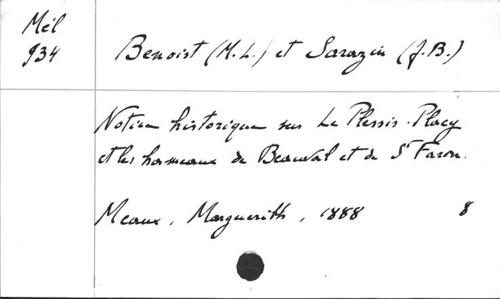 Mél
934
Benoist (M. L.) et Sarazin (J. B.)
Notice historique sur Le Plessis-Placy
et les hameaux de Beauval et de St Faron.
Meaux, Marguerith, 1888 8